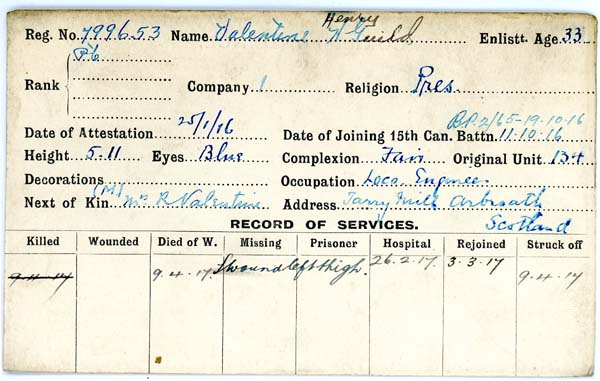 Henry
Reg. No. 799653 Name Valentine H Guild Enlistt. Age 33
Pte
Rank Company 1 Religion Pres.
25/1/16 2/65-19-10-16
Date of Attestation Date of Joining 15th Can. Battn. 11-10-16
Height 5.11 Eyes Blue Complexion Fair Original Unit 134
Decorations Occupation Loco. Engineer
(M)
Next of Kin Mrs R Valentine Address Tarry Mill Arbroath
Scotland
RECORD OF SERVICES.
Killed Wounded Died of W. Missing Prisoner Hospital Rejoined Struck off
9-4-17 9-4-17. S wound left thigh. 26-2-17. 3-3-17 9-4-17